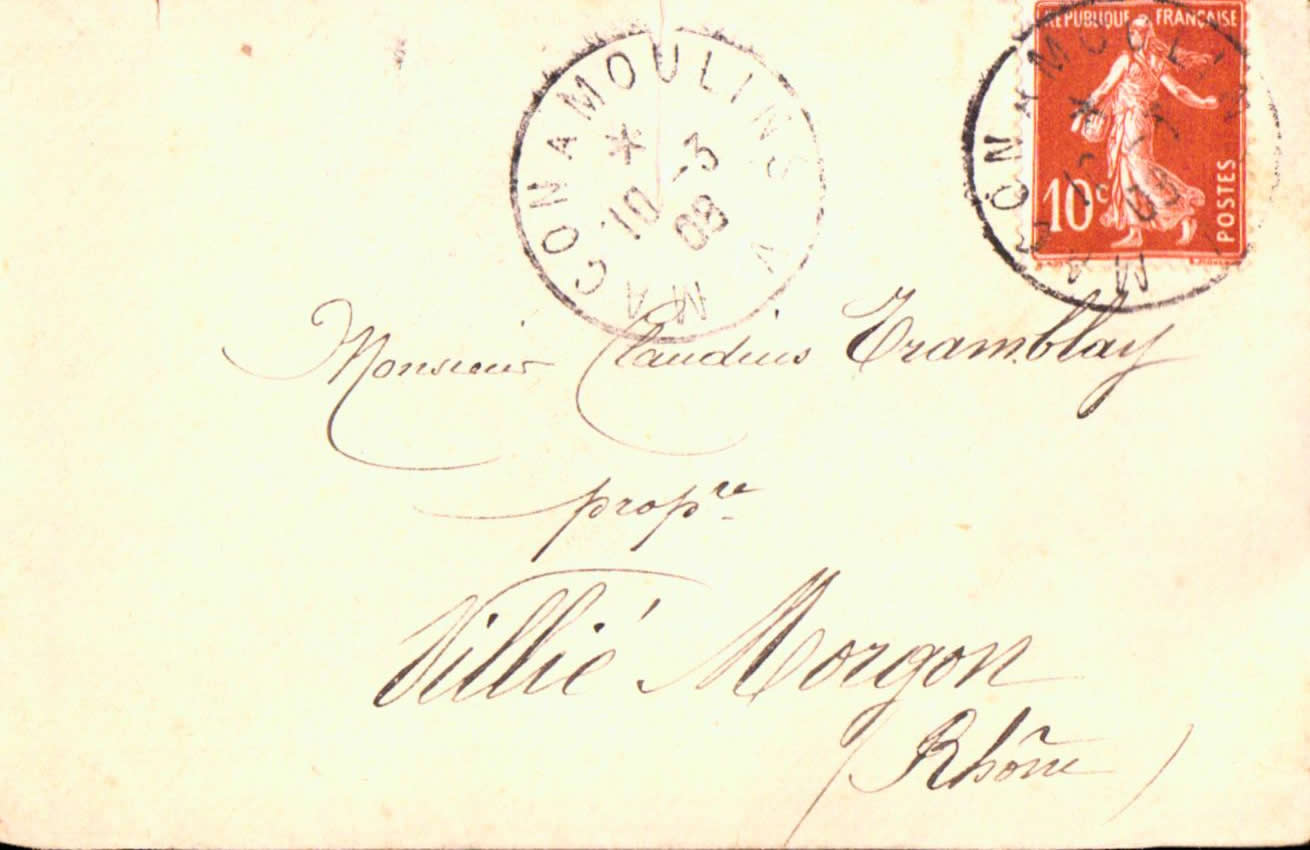 MACON A MOULINS
*
10 -3
08
RÉPUBLIQUE FRANÇAISE
10c
POSTES
MACON A MOULINS
*
10
Monsieur Claudius Tramblay
propre
Villié Morgon
(Rhône)